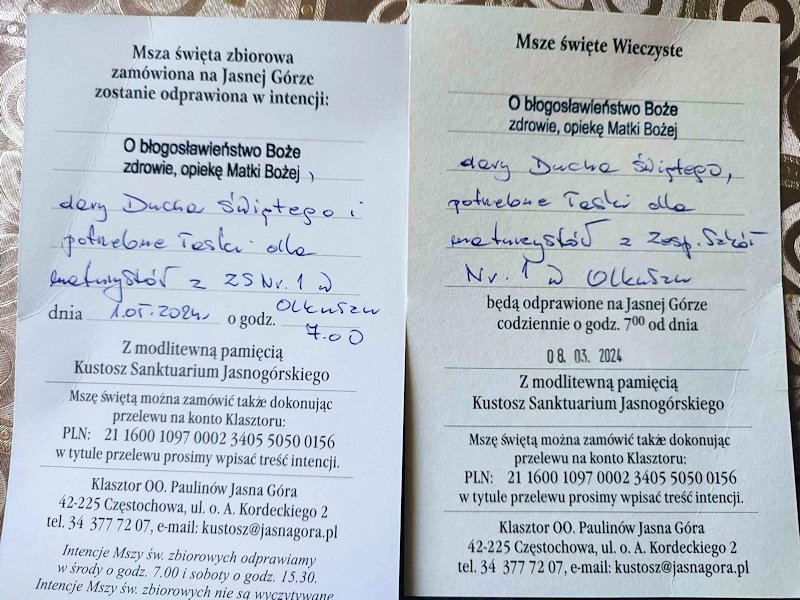 Msza święta zbiorowa
zamówiona na Jasnej Górze
zostanie odprawiona w intencji:
O błogosławieństwo Boże
zdrowie, opiekę Matki Bożej,
dary Ducha Świętego i
potrzebne łaski dla
maturzystów z ZS Nr. 1 w
Olkuszu
dnia 1.05.2024r. o godz. 7.00
Z modlitewną pamięcią
Kustosz Sanktuarium Jasnogórskiego
Mszę świętą można zamówić także dokonując
przelewu na konto Klasztoru:
PLN: 21 1600 1097 0002 3405 5050 0156
w tytule przelewu prosimy wpisać treść intencji.
Klasztor OO. Paulinów Jasna Góra
42-225 Częstochowa, ul. o. A. Kordeckiego 2
tel. 34 377 72 07, e-mail: kustosz@jasnagora.pl
Intencje Mszy św. zbiorowych odprawiamy
w środy o godz. 7.00 i soboty o godz. 15.30.
Intencje Mszy św. zbiorowych nie są wyczytywane
Msze święte Wieczyste
O błogosławieństwo Boże
zdrowie, opiekę Matki Bożej
dary Ducha Świętego,
potrzebne łaski dla
maturzystów z Zesp. Szkół
Nr. 1 w Olkuszu
będą odprawione na Jasnej Górze
codziennie o godz. 7⁰⁰ od dnia
08. 03. 2024
Z modlitewną pamięcią
Kustosz Sanktuarium Jasnogórskiego
Mszę świętą można zamówić także dokonując
przelewu na konto Klasztoru:
PLN: 21 1600 1097 0002 3405 5050 0156
w tytule przelewu prosimy wpisać treść intencji.
Klasztor OO. Paulinów Jasna Góra
42-225 Częstochowa, ul. o. A. Kordeckiego 2
tel. 34 377 72 07, e-mail: kustosz@jasnagora.pl